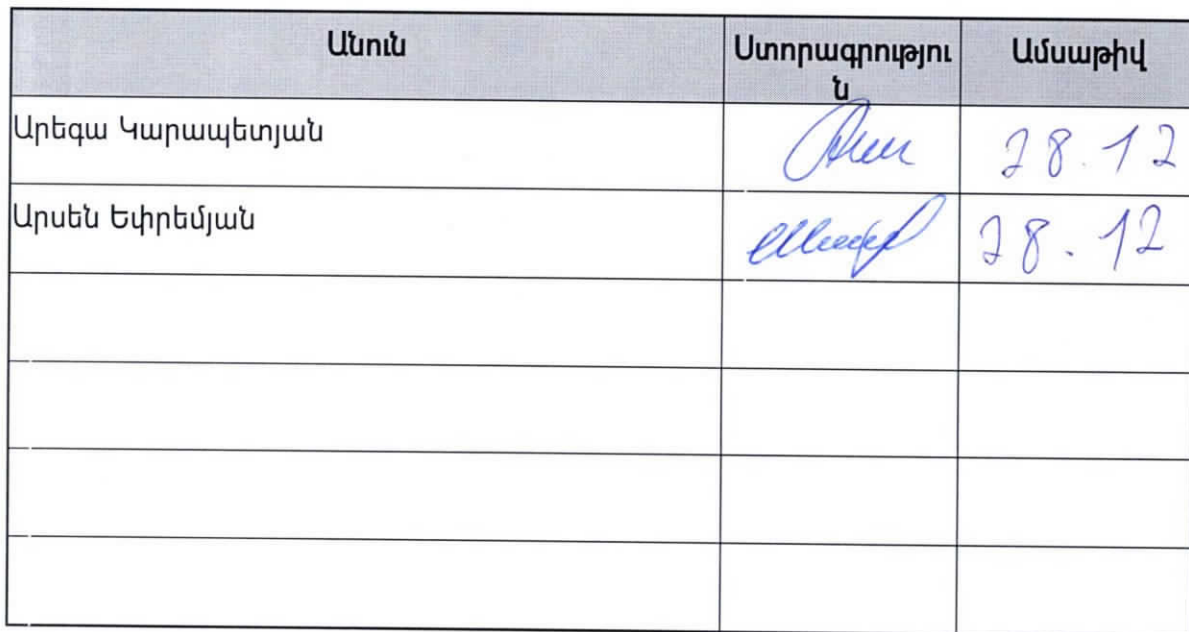 Անուն Ստորագրությու
ն Ամսաթիվ
Արեգա Կարապետյան 28.12
Արսեն Եփրեմյան 28.12